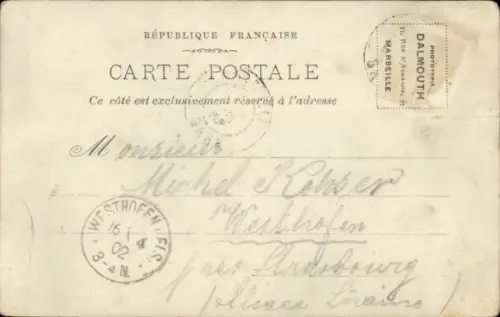 RÉPUBLIQUE FRANÇAISE
CARTE POSTALE
Ce côté est exclusivement réservé à l'adresse
PHOTOTYPIE
DALMOUTH
MARSEILLE
Monsieur
Michel
Westhofen
près Strasbourg
(Alsace Loraine)
WESTHOFEN (ELS.)
02
8-9N.